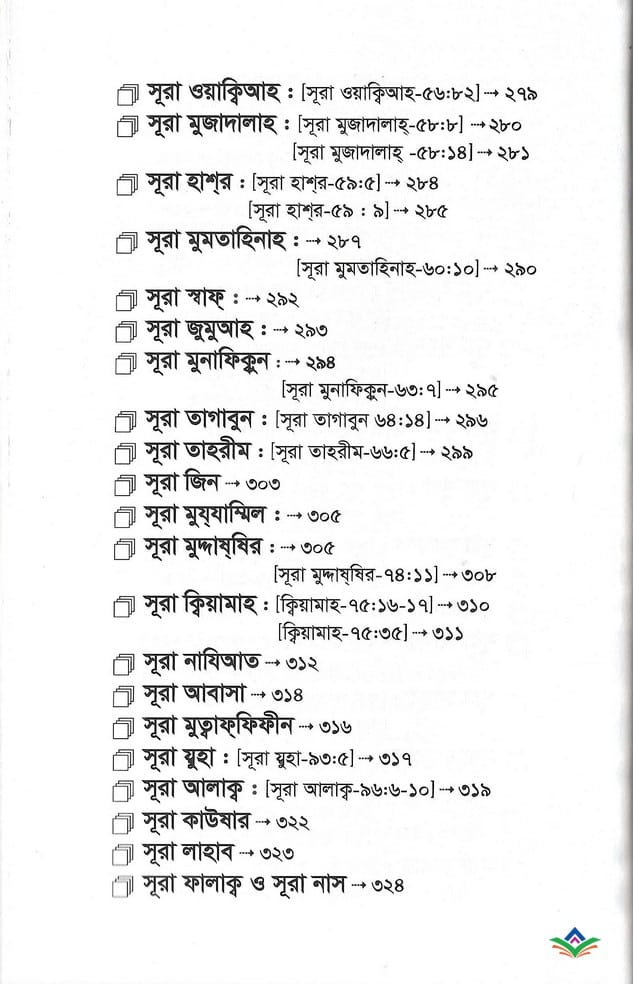 সূরা ওয়াক্বিআহ : [সূরা ওয়াক্বিআহ-৫৬:৮২]→ ২৭৯
সূরা মুজাদালাহ : [সূরা মুজাদালাহ-৫৮:৮] →২৮০
[সূরা মুজাদালাহ্ -৫৮:১৪]→ ২৮১
সূরা হাশ্‌র : [সূরা হাশ্‌র-৫৯:৫]→ ২৮৪
[সূরা হাশ্‌র-৫৯ : ৯]→ ২৮৫
সূরা মুমতাহিনাহ : → ২৮৭
[সূরা মুমতাহিনাহ-৬০:১০]→ ২৯০
সূরা স্বাফ্ : → ২৯২
সূরা জুমুআহ : → ২৯৩
সূরা মুনাফিক্বুন : → ২৯৪
[সূরা মুনাফিক্বুন-৬৩:৭]→ ২৯৫
সূরা তাগাবুন : [সূরা তাগাবুন ৬৪:১৪]→ ২৯৬
সূরা তাহরীম : [সূরা তাহরীম-৬৬:৫]→ ২৯৯
সূরা জিন → ৩০৩
সূরা মুয্‌যাম্মিল : → ৩০৫
সূরা মুদ্দাষ্‌ষির : → ৩০৫
[সূরা মুদ্দাষ্‌ষির-৭৪:১১]→ ৩০৮
সূরা ক্বিয়ামাহ : [ক্বিয়ামাহ-৭৫:১৬-১৭]→ ৩১০
[ক্বিয়ামাহ-৭৫:৩৫]→ ৩১১
সূরা নাযিআত → ৩১২
সূরা আবাসা → ৩১৪
সূরা মুত্বাফ্‌ফিফীন → ৩১৬
সূরা য্বুহা : [সূরা য্বুহা-৯৩:৫]→ ৩১৭
সূরা আলাক্ব : [সূরা আলাক্ব-৯৬:৬-১০]→ ৩১৯
সূরা কাউষার → ৩২২
সূরা লাহাব → ৩২৩
সূরা ফালাক্ব ও সূরা নাস → ৩২৪